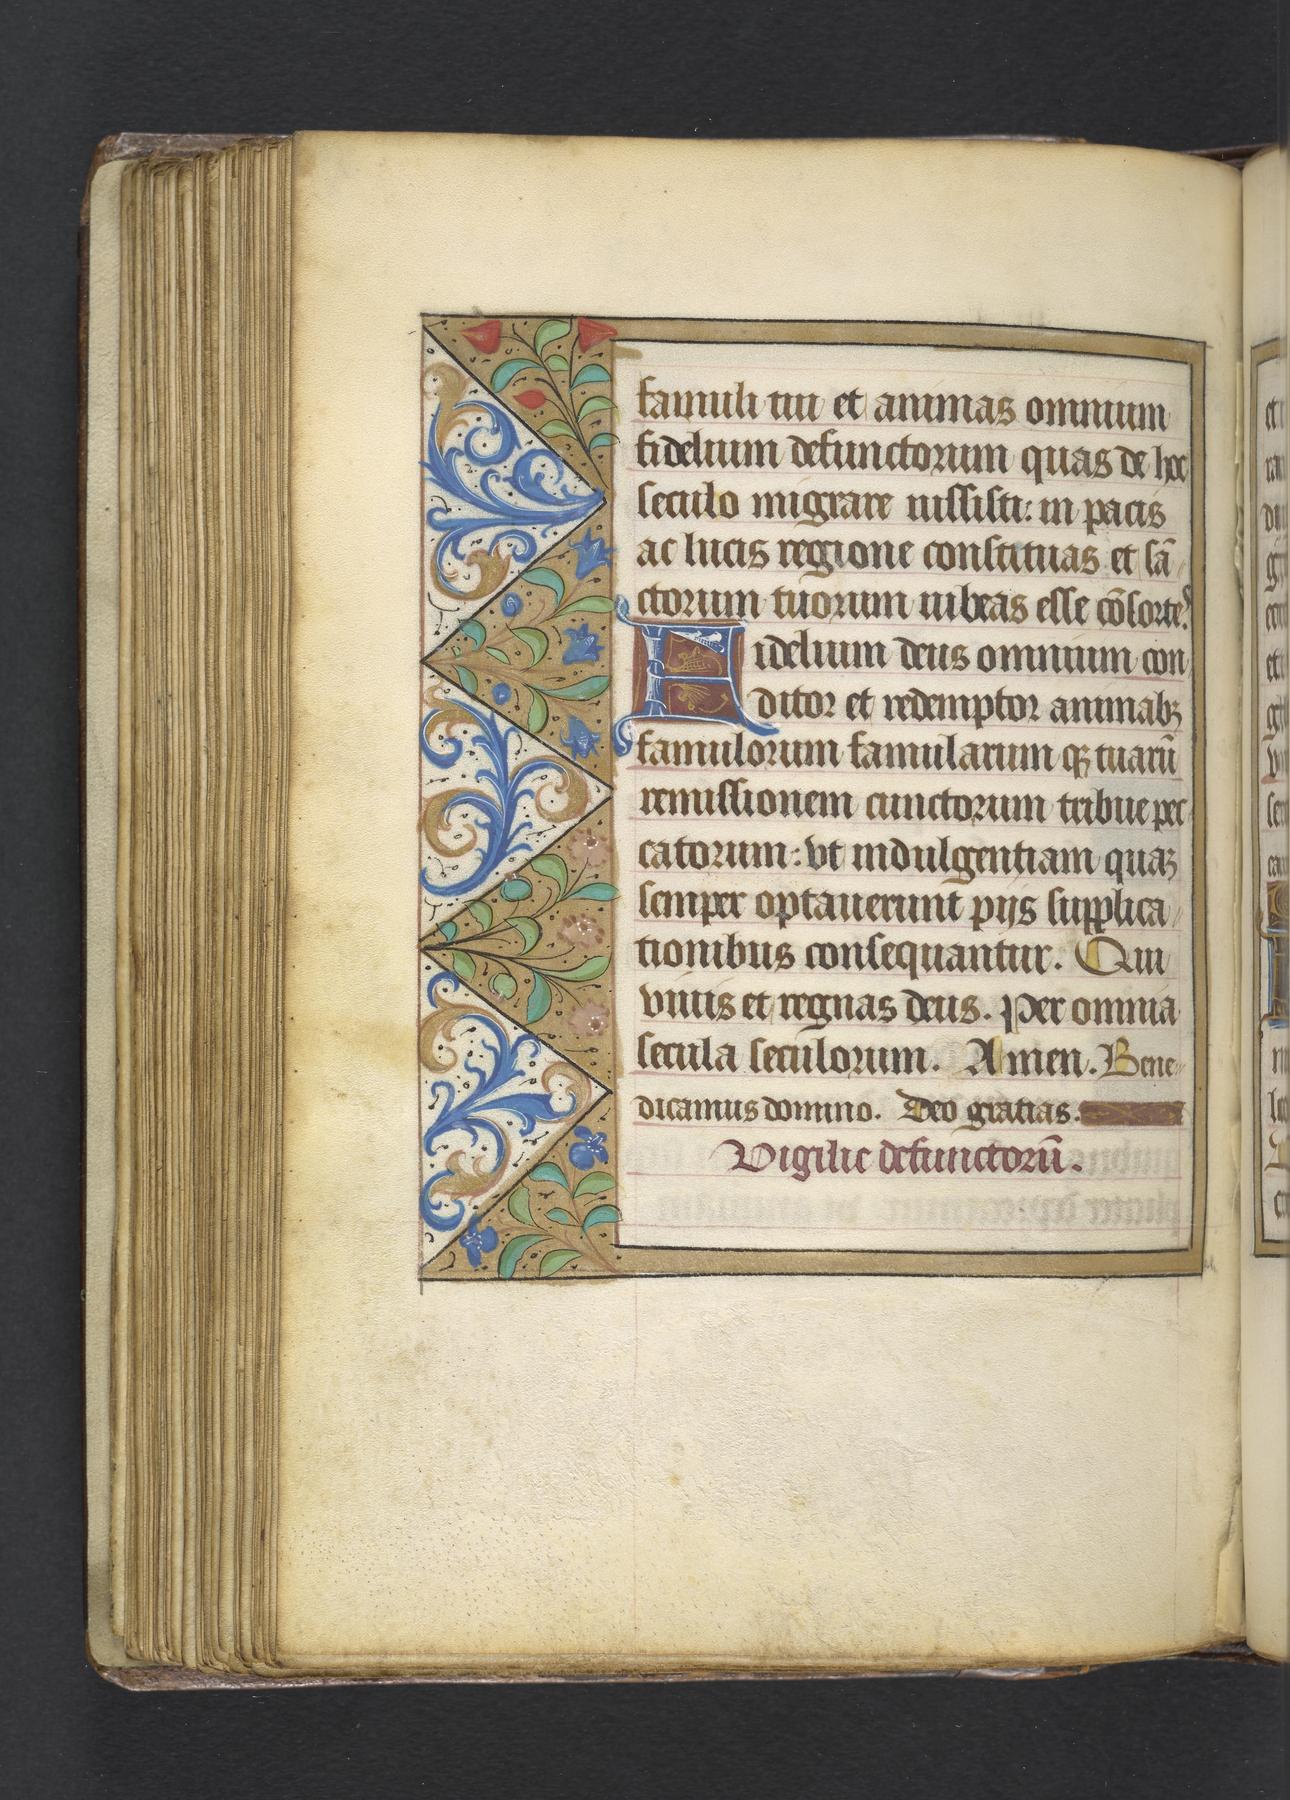 famuli tui et animas omnium
fidelium defunctorum quas de hoc
seculo migrare iussisti: in pacis
ac lucis regione constituas et sā
ctorum tuorum iubeas esse cōsorteꝫ
Fidelium deus omnium con
ditor et redemptor animabꝫ
famulorum famularum qꝫ tuarū
remissionem cunctorum tribue pec
catorum: vt indulgentiam quaꝫ
semper optauerunt pijs supplica
tionibus consequantur. Qui
viuis et regnas deus. Per omnia
secula seculorum. Amen. Bene-
dicamus domino. Deo gratias.
Vigilie defunctorū.